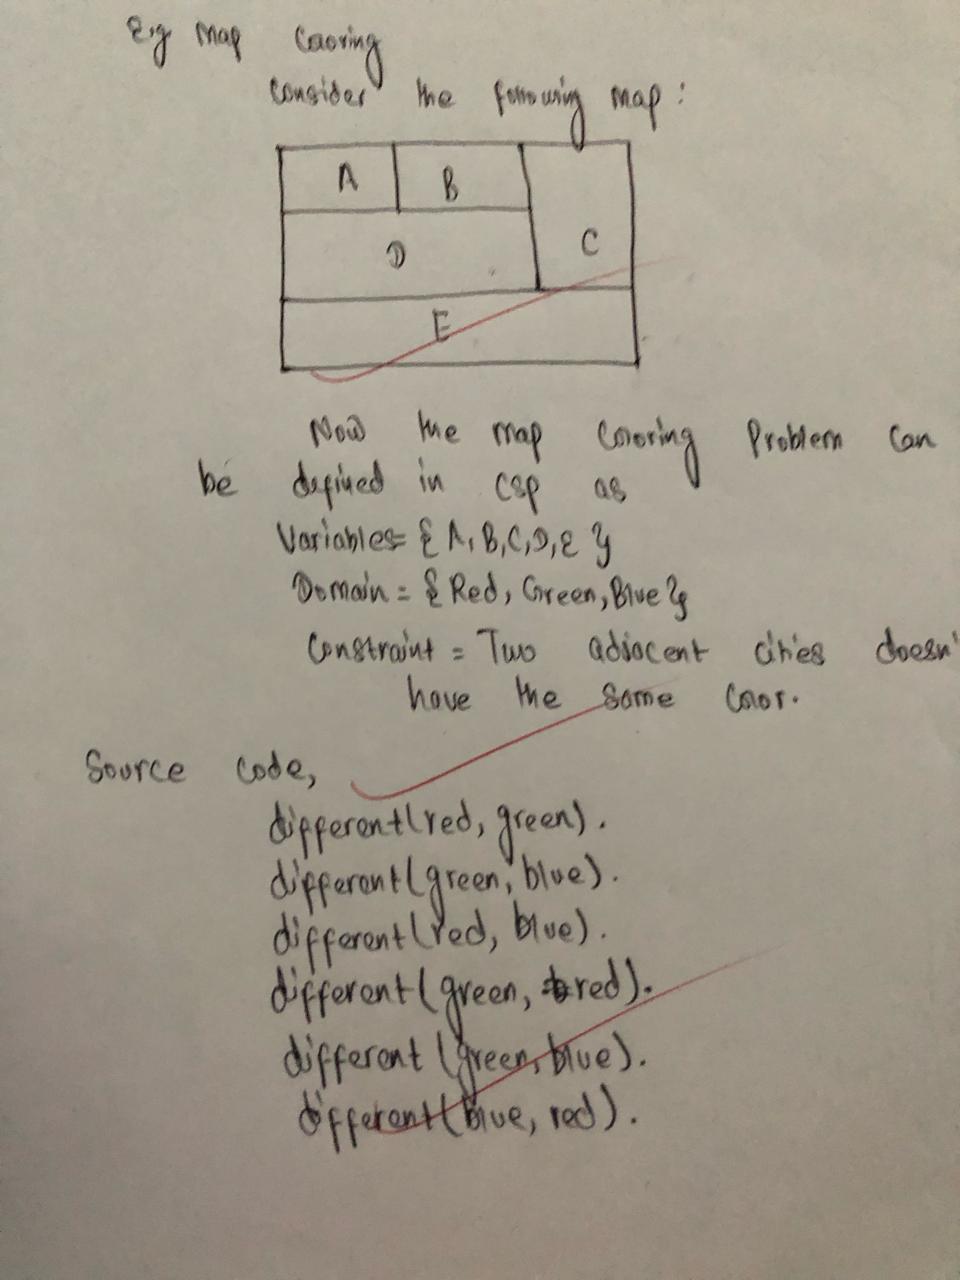 E.g Map Coloring
Consider the following map:
A B
C
D
E
Now the map coloring Problem can
be defined in CSP as
Variables= { A, B, C, D, E }
Domain = { Red, Green, Blue }
Constraint = Two adjacent cities doesn'
have the same color.
Source code,
different(red, green).
different(green, blue).
different(red, blue).
different(green, red).
different (green, blue).
different(blue, red).